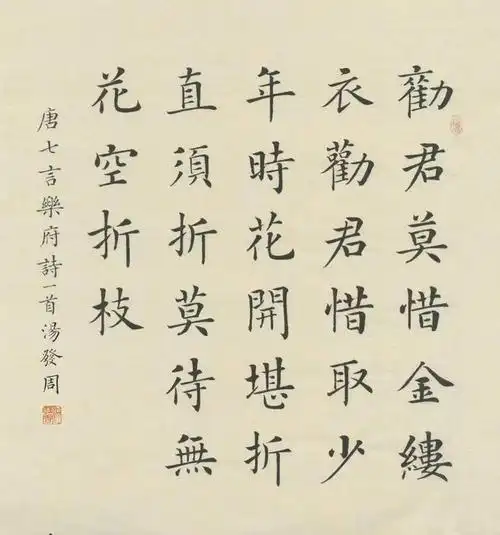 勸君莫惜金縷
衣勸君惜取少
年時花開堪折
直須折莫待無
花空折枝
唐七言樂府詩一首湯發周